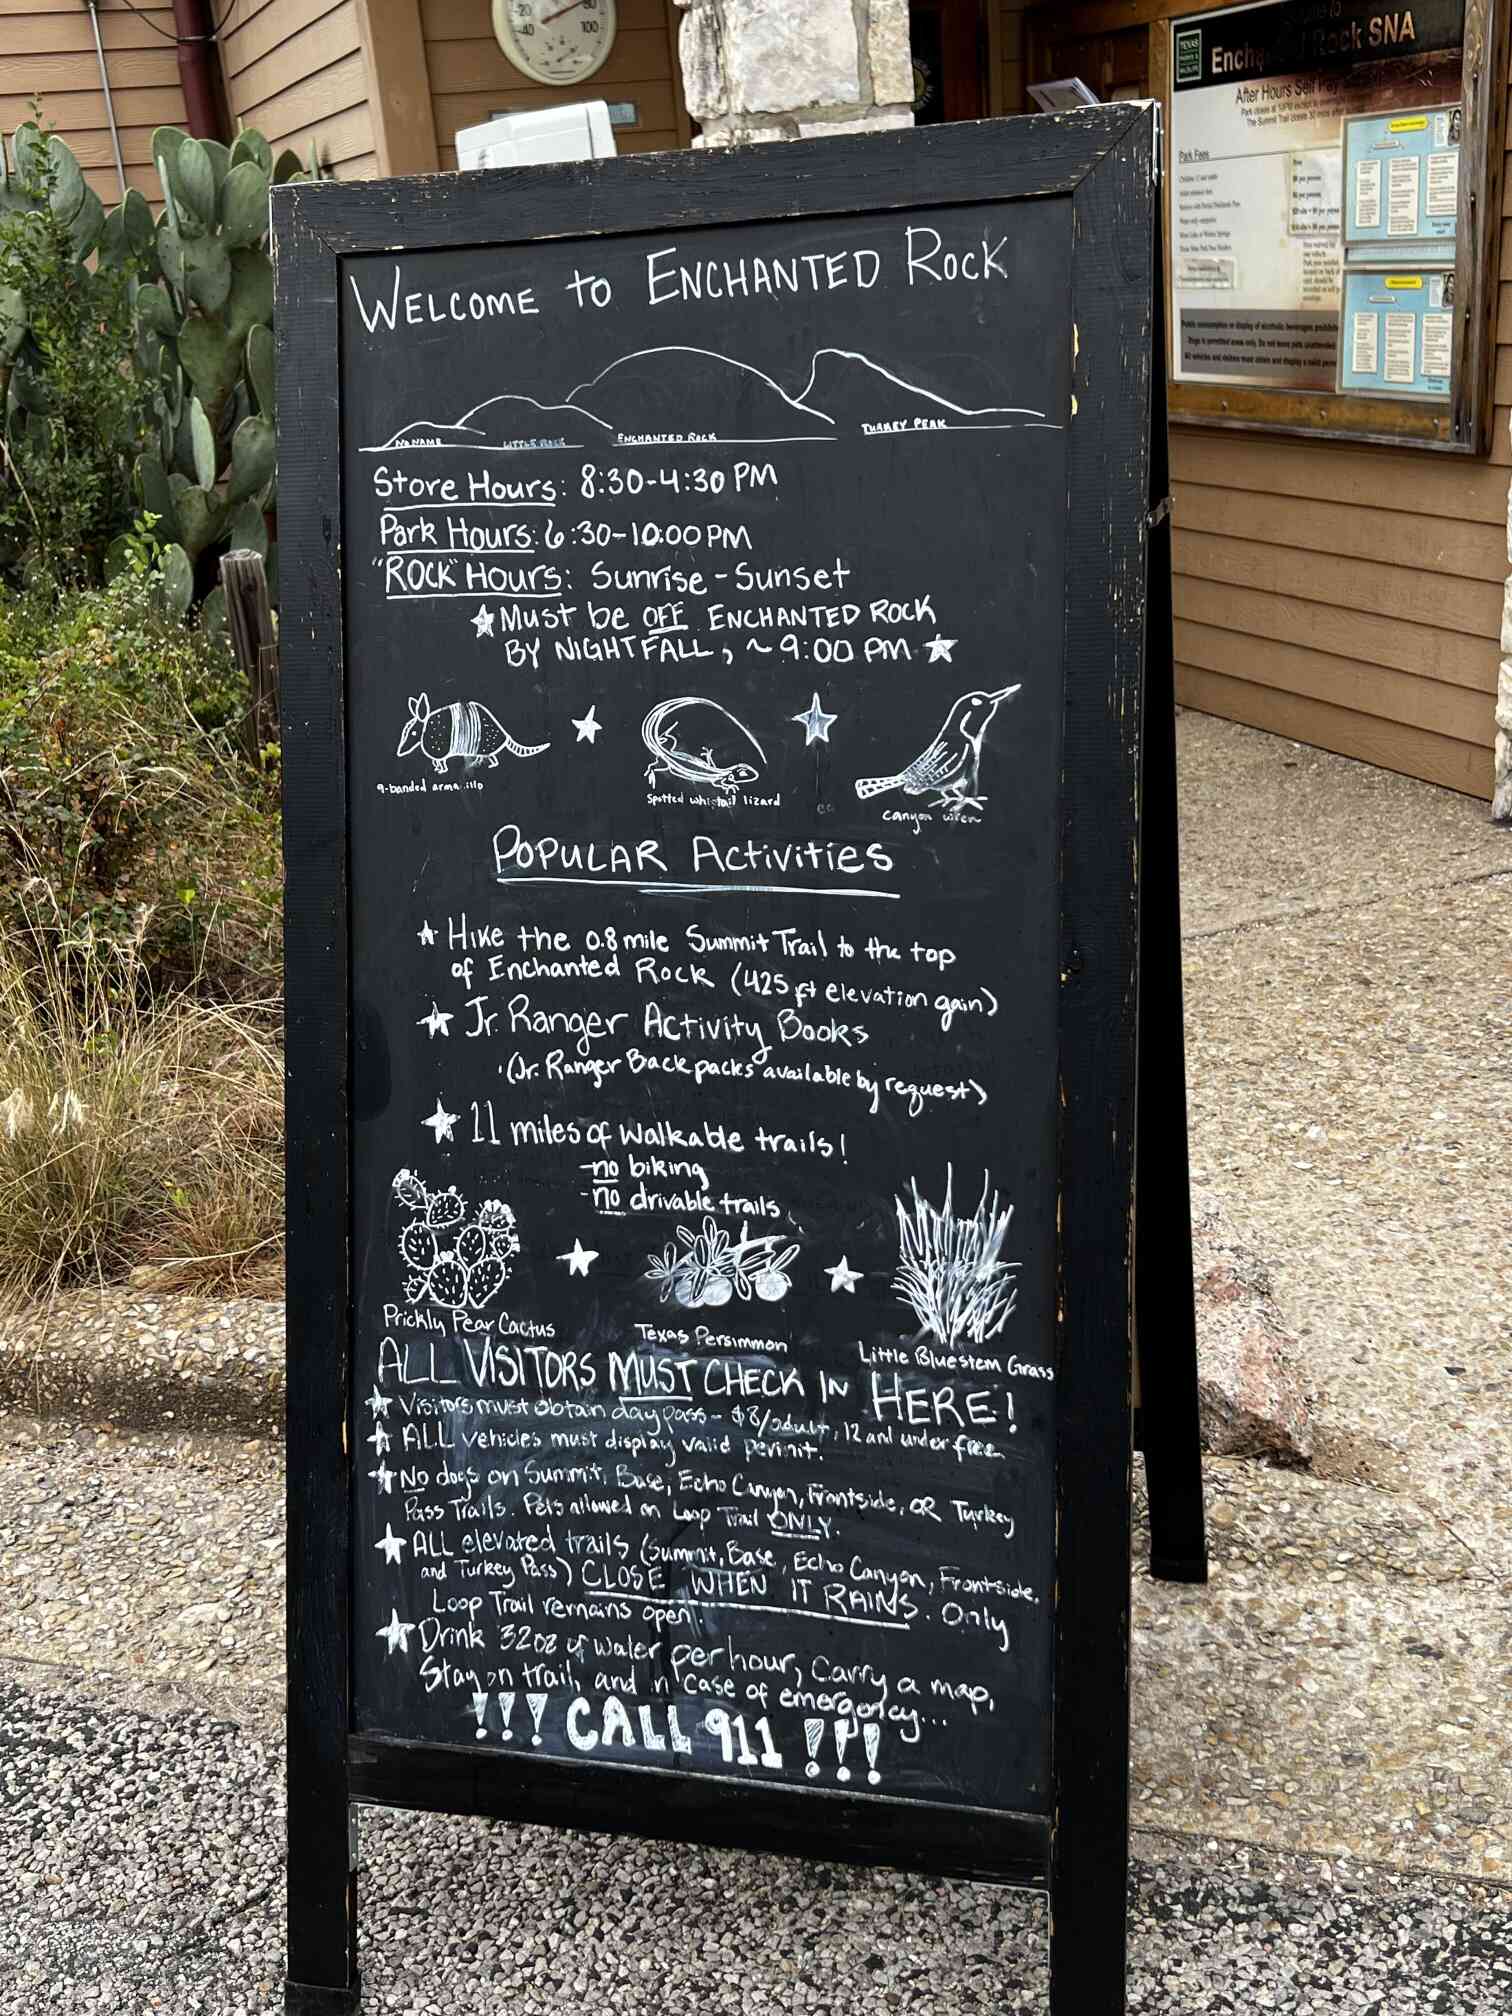 WELCOME to ENCHANTED ROCK
NO NAME
LITTLE ROCK
ENCHANTED ROCK
TURKEY PEAK
Store Hours: 8:30-4:30 PM
Park Hours: 6:30-10:00 PM
"ROCK" Hours: Sunrise - Sunset
★ Must be OFF ENCHANTED ROCK
BY NIGHTFALL, ~9:00 PM ★
9-banded arma illo
Spotted whiptail lizard
canyon wren
POPULAR Activities
★ Hike the 0.8 mile Summit Trail to the top
of Enchanted Rock (425 ft elevation gain)
★ Jr. Ranger Activity Books
(Jr. Ranger Backpacks available by request)
★ 11 miles of walkable trails!
-no biking
-no drivable trails
Prickly Pear Cactus
Texas Persimmon
Little Bluestem Grass
ALL VISITORS MUST CHECK IN HERE!
★ Visitors must obtain day pass - $8/adult, 12 and under free
★ ALL vehicles must display valid permit.
★ No dogs on Summit, Base, Echo Canyon, Frontside, OR Turkey
Pass Trails. Pets allowed on Loop Trail ONLY.
★ ALL elevated trails (Summit, Base, Echo Canyon, Frontside,
and Turkey Pass) CLOSE WHEN IT RAINS. Only
Loop Trail remains open.
★ Drink 32oz of water per hour, Carry a map,
Stay on trail, and in case of emergency...
!!! CALL 911 !!!
20
80
40
100
TEXAS
Rock SNA
After Hours Self Pay
Park Fees